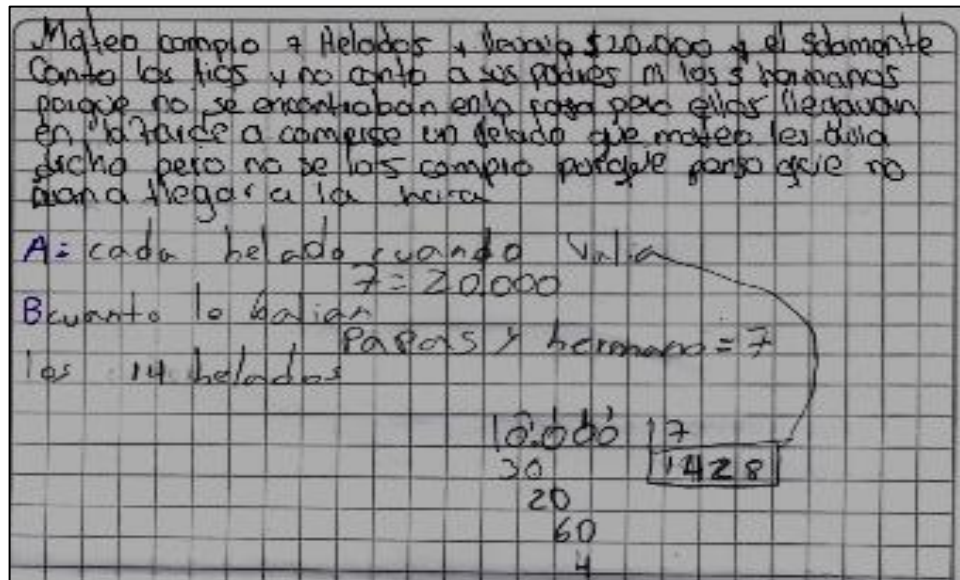 Mateo complo 7 Helados y llevaia $20.000 y el solamente
Conto los tios y no conto a sus padres ni los 5 hermanos
porque no se encontraban en la casa pero ellos llegavan
en la tarde a comprse un helado que mateo les avia
dicho pero no se los complo porque penso que no
ivan a llegar a la hora
A= cada helado cuando Valia
7=20.000
B cuanto le balian
Papas y hermano = 7
los 14 helados
10.000 17
30 1428
20
60
4